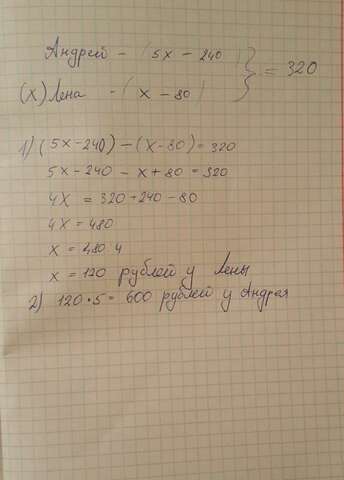 Андрей - (5х - 240)
} = 320
(х) Лена - (х - 80)
1) (5х-240) - (х-80) = 320
5х-240 - х + 80 = 320
4х = 320 + 240 - 80
4х = 480
х = 480:4
х = 120 рублей у Лены
2) 120 • 5 = 600 рублей у Андрея